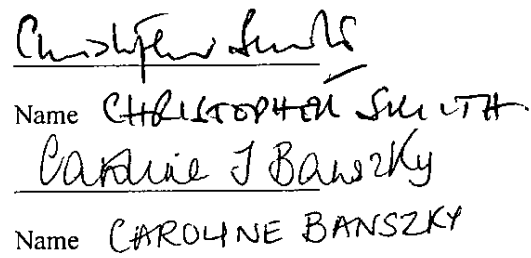 Christopher Smith
Name CHRISTOPHER SMITH
Caroline J Banszky
Name CAROLINE BANSZKY